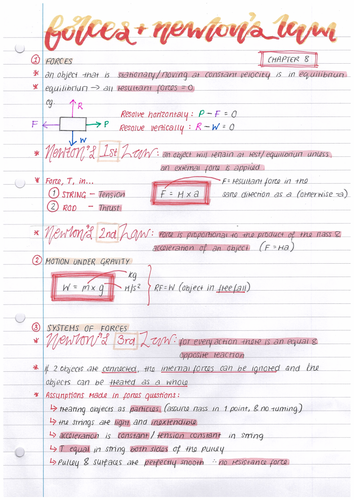 forces + newton's law
① FORCES
CHAPTER 8
* an object that is stationary/moving at constant velocity is in equilibrium
* equilibrium → all resultant forces = 0
eg.
R
F
P
W
Resolve horizontally: P - F = 0
Resolve vertically: R - W = 0
* Newton's 1st Law: an object will remain at rest/equilibrium unless
an external force is applied
* Force, T, in...
① STRING - Tension
② ROD - Thrust
F = M x a
F = resultant force in the
same direction as a (otherwise -a)
* Newton's 2nd Law: Force is proportional to the product of the mass &
acceleration of an object (F = ma)
② MOTION UNDER GRAVITY
W = m x g
kg
m/s²
RF = W (object in freefall)
③ SYSTEMS OF FORCES
* Newton's 3rd Law: for every action there is an equal &
opposite reaction
* if 2 objects are connected, the internal forces can be ignored and the
objects can be treated as a whole
* Assumptions made in forces questions:
↳ treating objects as particles (assume mass in 1 point, & no turning)
↳ the strings are light and inextensible
↳ acceleration is constant/tension constant in string
↳ T equal in string both sides of the pulley
↳ Pulley & surfaces are perfectly smooth ∴ no resistance force